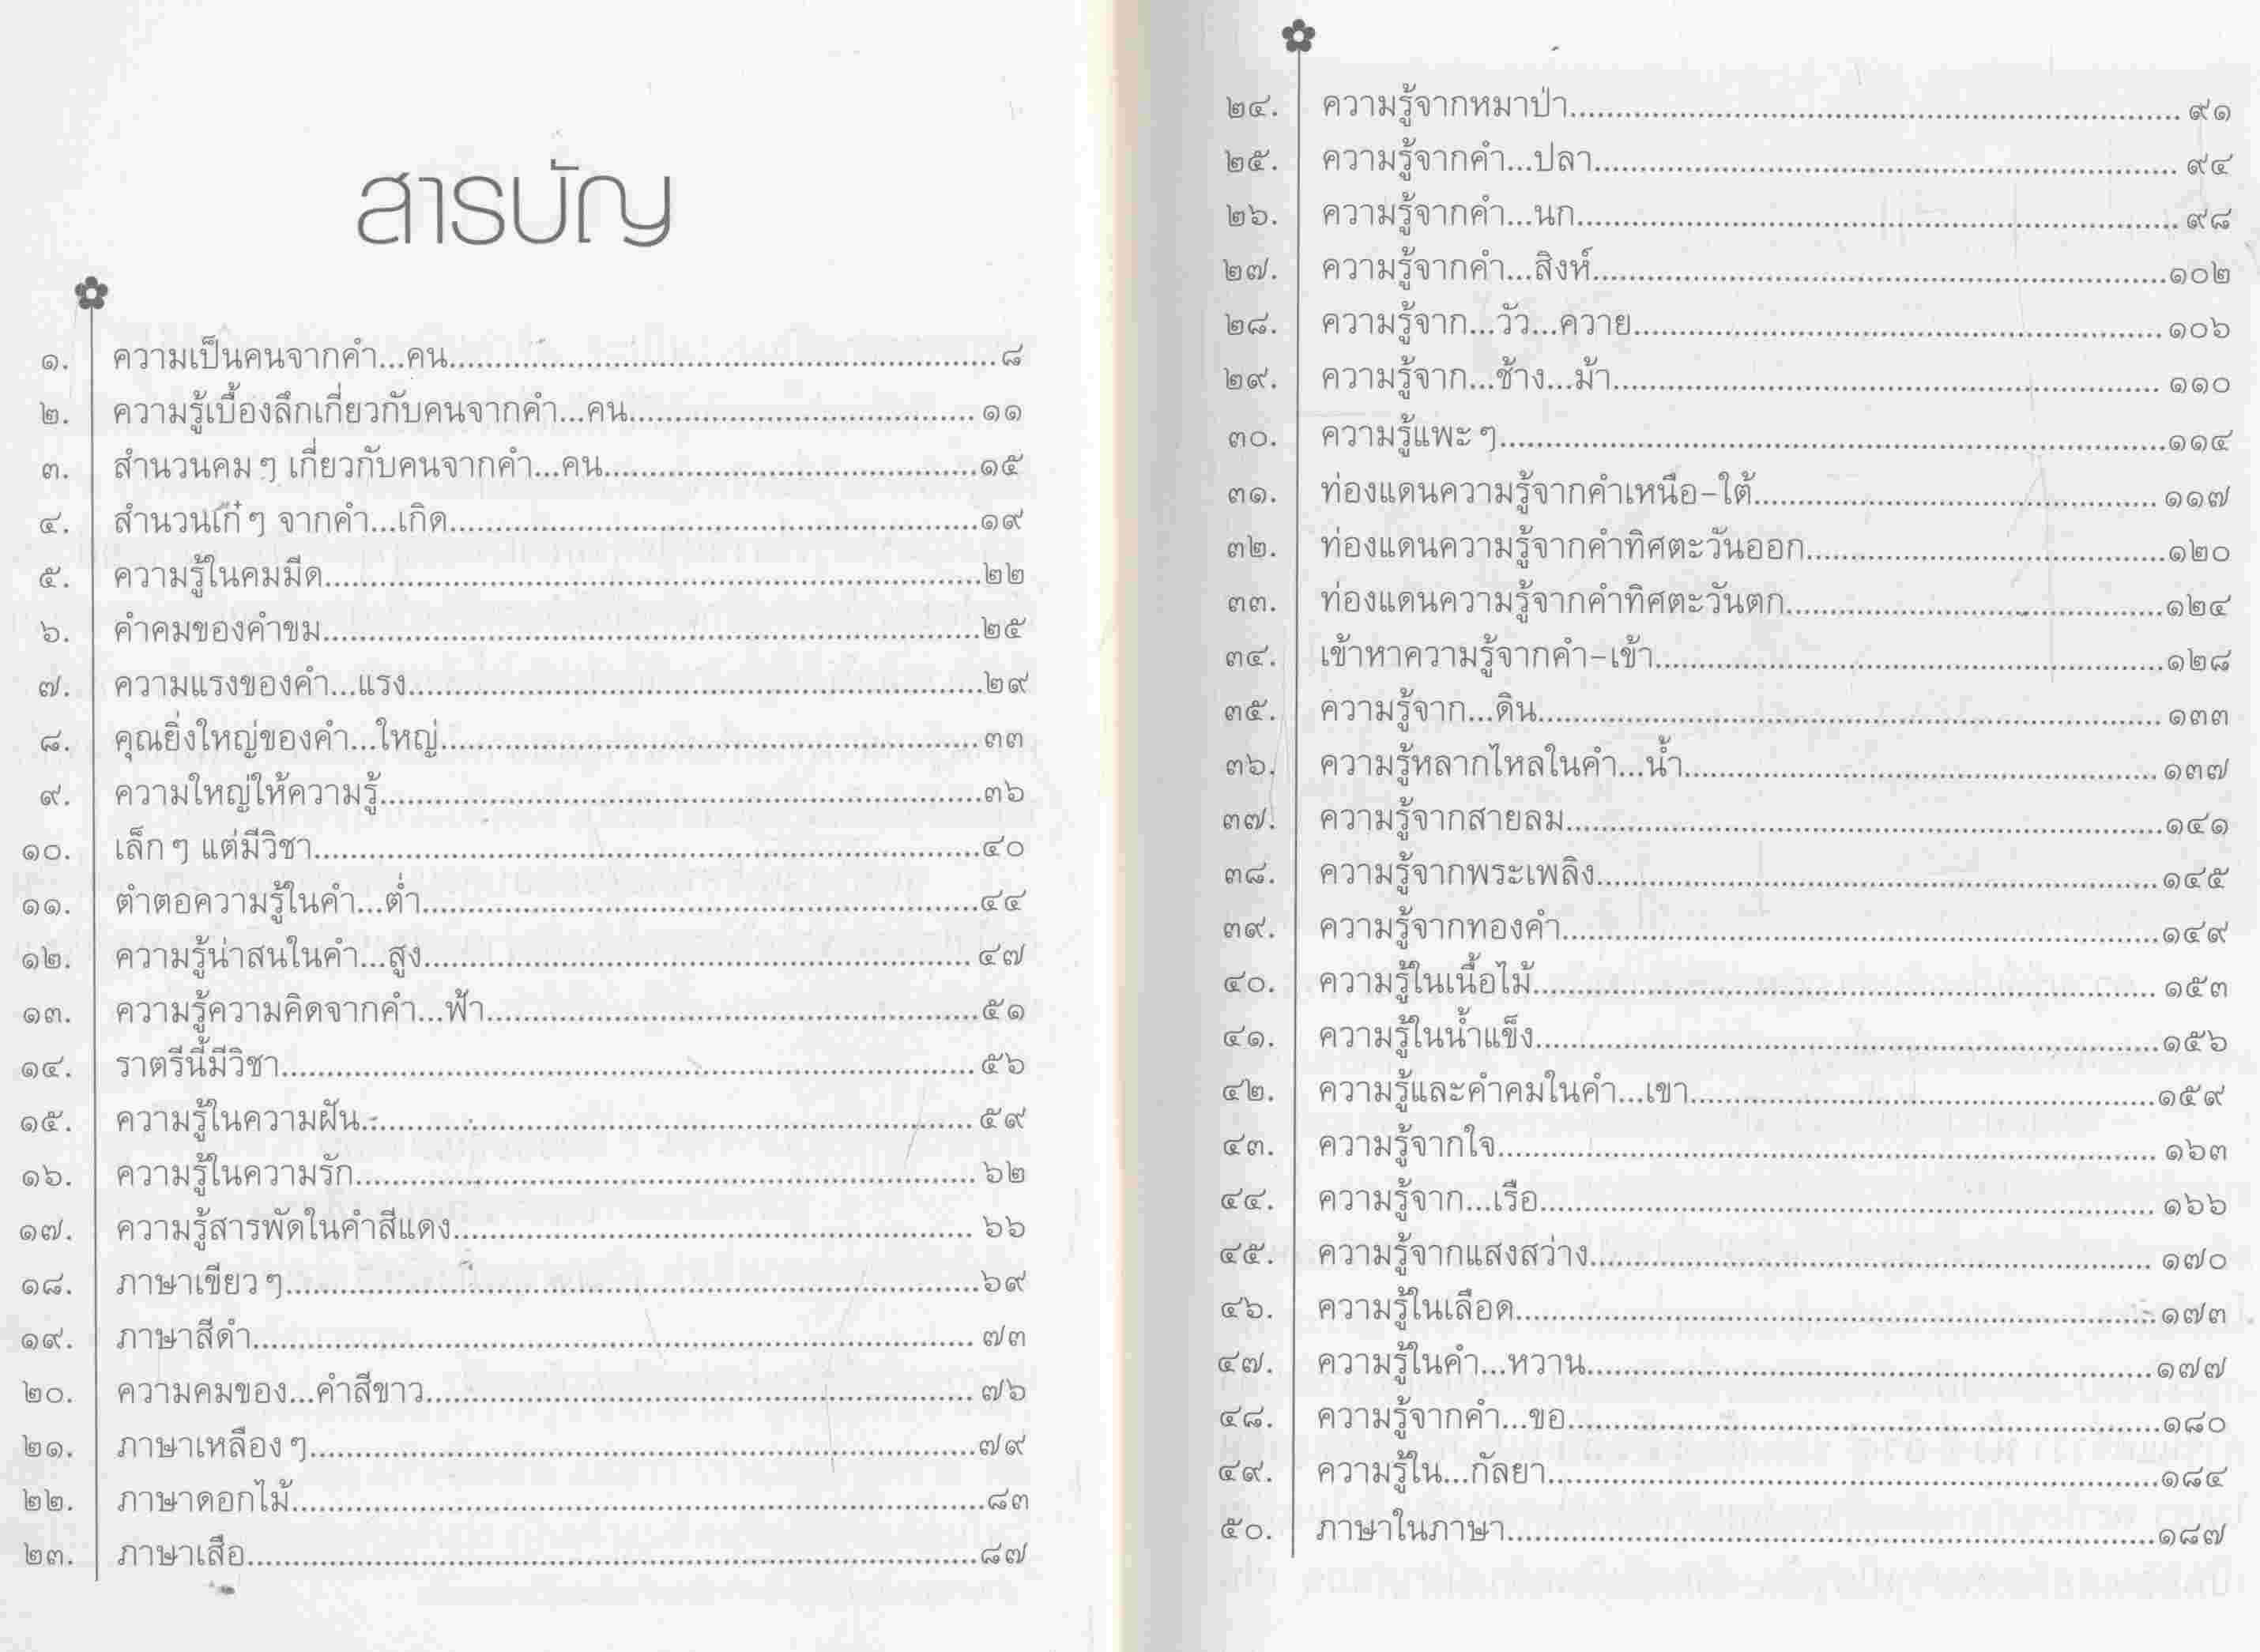 สารบัญ
๑. ความเป็นคนจากคำ...คน ๘
๒. ความรู้เบื้องลึกเกี่ยวกับคนจากคำ...คน ๑๑
๓. สำนวนคมๆ เกี่ยวกับคนจากคำ...คน ๑๕
๔. สำนวนเก๋ๆ จากคำ...เกิด ๑๙
๕. ความรู้ในคมมีด ๒๒
๖. คำคมของคำขม ๒๕
๗. ความแรงของคำ...แรง ๒๙
๘. คุณยิ่งใหญ่ของคำ...ใหญ่ ๓๓
๙. ความใหญ่ให้ความรู้ ๓๖
๑๐. เล็กๆ แต่มีวิชา ๔๐
๑๑. ตำตอความรู้ในคำ...ต่ำ ๔๔
๑๒. ความรู้น่าสนในคำ...สูง ๔๗
๑๓. ความรู้ความคิดจากคำ...ฟ้า ๕๑
๑๔. ราตรีนี้มีวิชา ๕๖
๑๕. ความรู้ในความฝัน ๕๙
๑๖. ความรู้ในความรัก ๖๒
๑๗. ความรู้สารพัดในคำสีแดง ๖๖
๑๘. ภาษาเขียวๆ ๖๙
๑๙. ภาษาสีดำ ๗๓
๒๐. ความคมของ...คำสีขาว ๗๖
๒๑. ภาษาเหลืองๆ ๗๙
๒๒. ภาษาดอกไม้ ๘๓
๒๓. ภาษาเสือ ๘๗
๒๔. ความรู้จากหมาป่า ๙๑
๒๕. ความรู้จากคำ...ปลา ๙๔
๒๖. ความรู้จากคำ...นก ๙๘
๒๗. ความรู้จากคำ...สิงห์ ๑๐๒
๒๘. ความรู้จาก...วัว...ควาย ๑๐๖
๒๙. ความรู้จาก...ช้าง...ม้า ๑๑๐
๓๐. ความรู้แพะๆ ๑๑๔
๓๑. ท่องแดนความรู้จากคำเหนือ-ใต้ ๑๑๗
๓๒. ท่องแดนความรู้จากคำทิศตะวันออก ๑๒๐
๓๓. ท่องแดนความรู้จากคำทิศตะวันตก ๑๒๔
๓๔. เข้าหาความรู้จากคำ-เข้า ๑๒๘
๓๕. ความรู้จาก...ดิน ๑๓๓
๓๖. ความรู้หลากไหลในคำ...น้ำ ๑๓๗
๓๗. ความรู้จากสายลม ๑๔๑
๓๘. ความรู้จากพระเพลิง ๑๔๕
๓๙. ความรู้จากทองคำ ๑๔๙
๔๐. ความรู้ในเนื้อไม้ ๑๕๓
๔๑. ความรู้ในน้ำแข็ง ๑๕๖
๔๒. ความรู้และคำคมในคำ...เขา ๑๕๙
๔๓. ความรู้จากใจ ๑๖๓
๔๔. ความรู้จาก...เรือ ๑๖๖
๔๕. ความรู้จากแสงสว่าง ๑๗๐
๔๖. ความรู้ในเลือด ๑๗๓
๔๗. ความรู้ในคำ...หวาน ๑๗๗
๔๘. ความรู้จากคำ...ขอ ๑๘๐
๔๙. ความรู้ใน...กัลยา ๑๘๔
๕๐. ภาษาในภาษา ๑๘๗